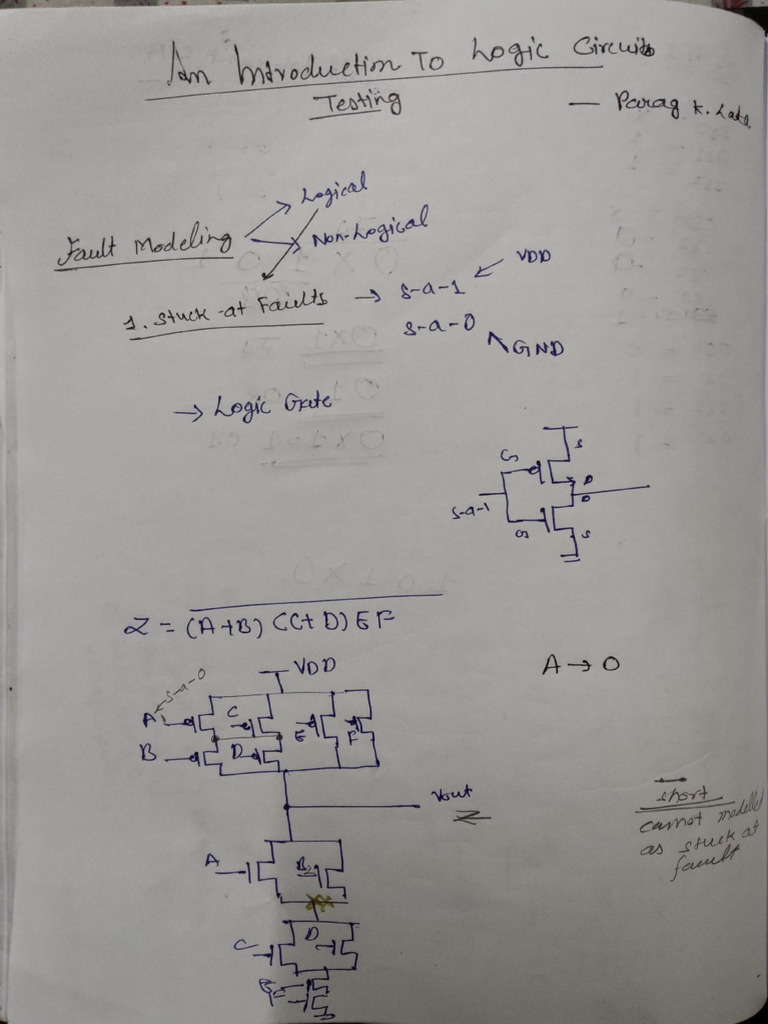 An Introduction To Logic Circuits
Testing
— Parag K.
Logical
Fault Modeling
Non-Logical
VDD
1. Stuck-at Faults → s-a-1
s-a-0
GND
→ Logic Gate
G S
D
s-a-1 D
G S
Z = (A+B) (C+D) E F
VDD
A → 0
s-a-0
A C
E F
B D
Vout
Z
short
cannot modelled
as stuck at
fault
A B
D
C
E
F